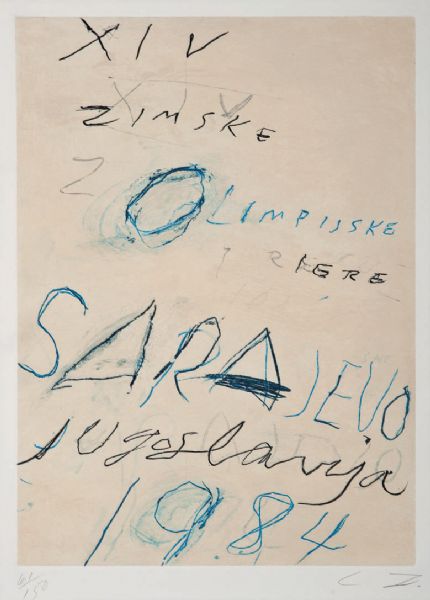 XIV
ZIMSKE
Z OLIMPIJSKE
IERE
SARAJEVO
Jugoslavija
1984
/150